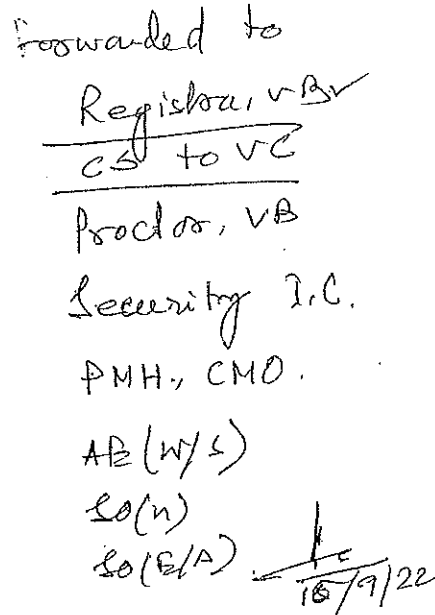 Forwarded to
Registrar, VB✓
CS to VC
Proctor, VB
Security I.C.
PMH., CMO.
AE (W/S)
SO(n)
SO(E/A)
15/9/22